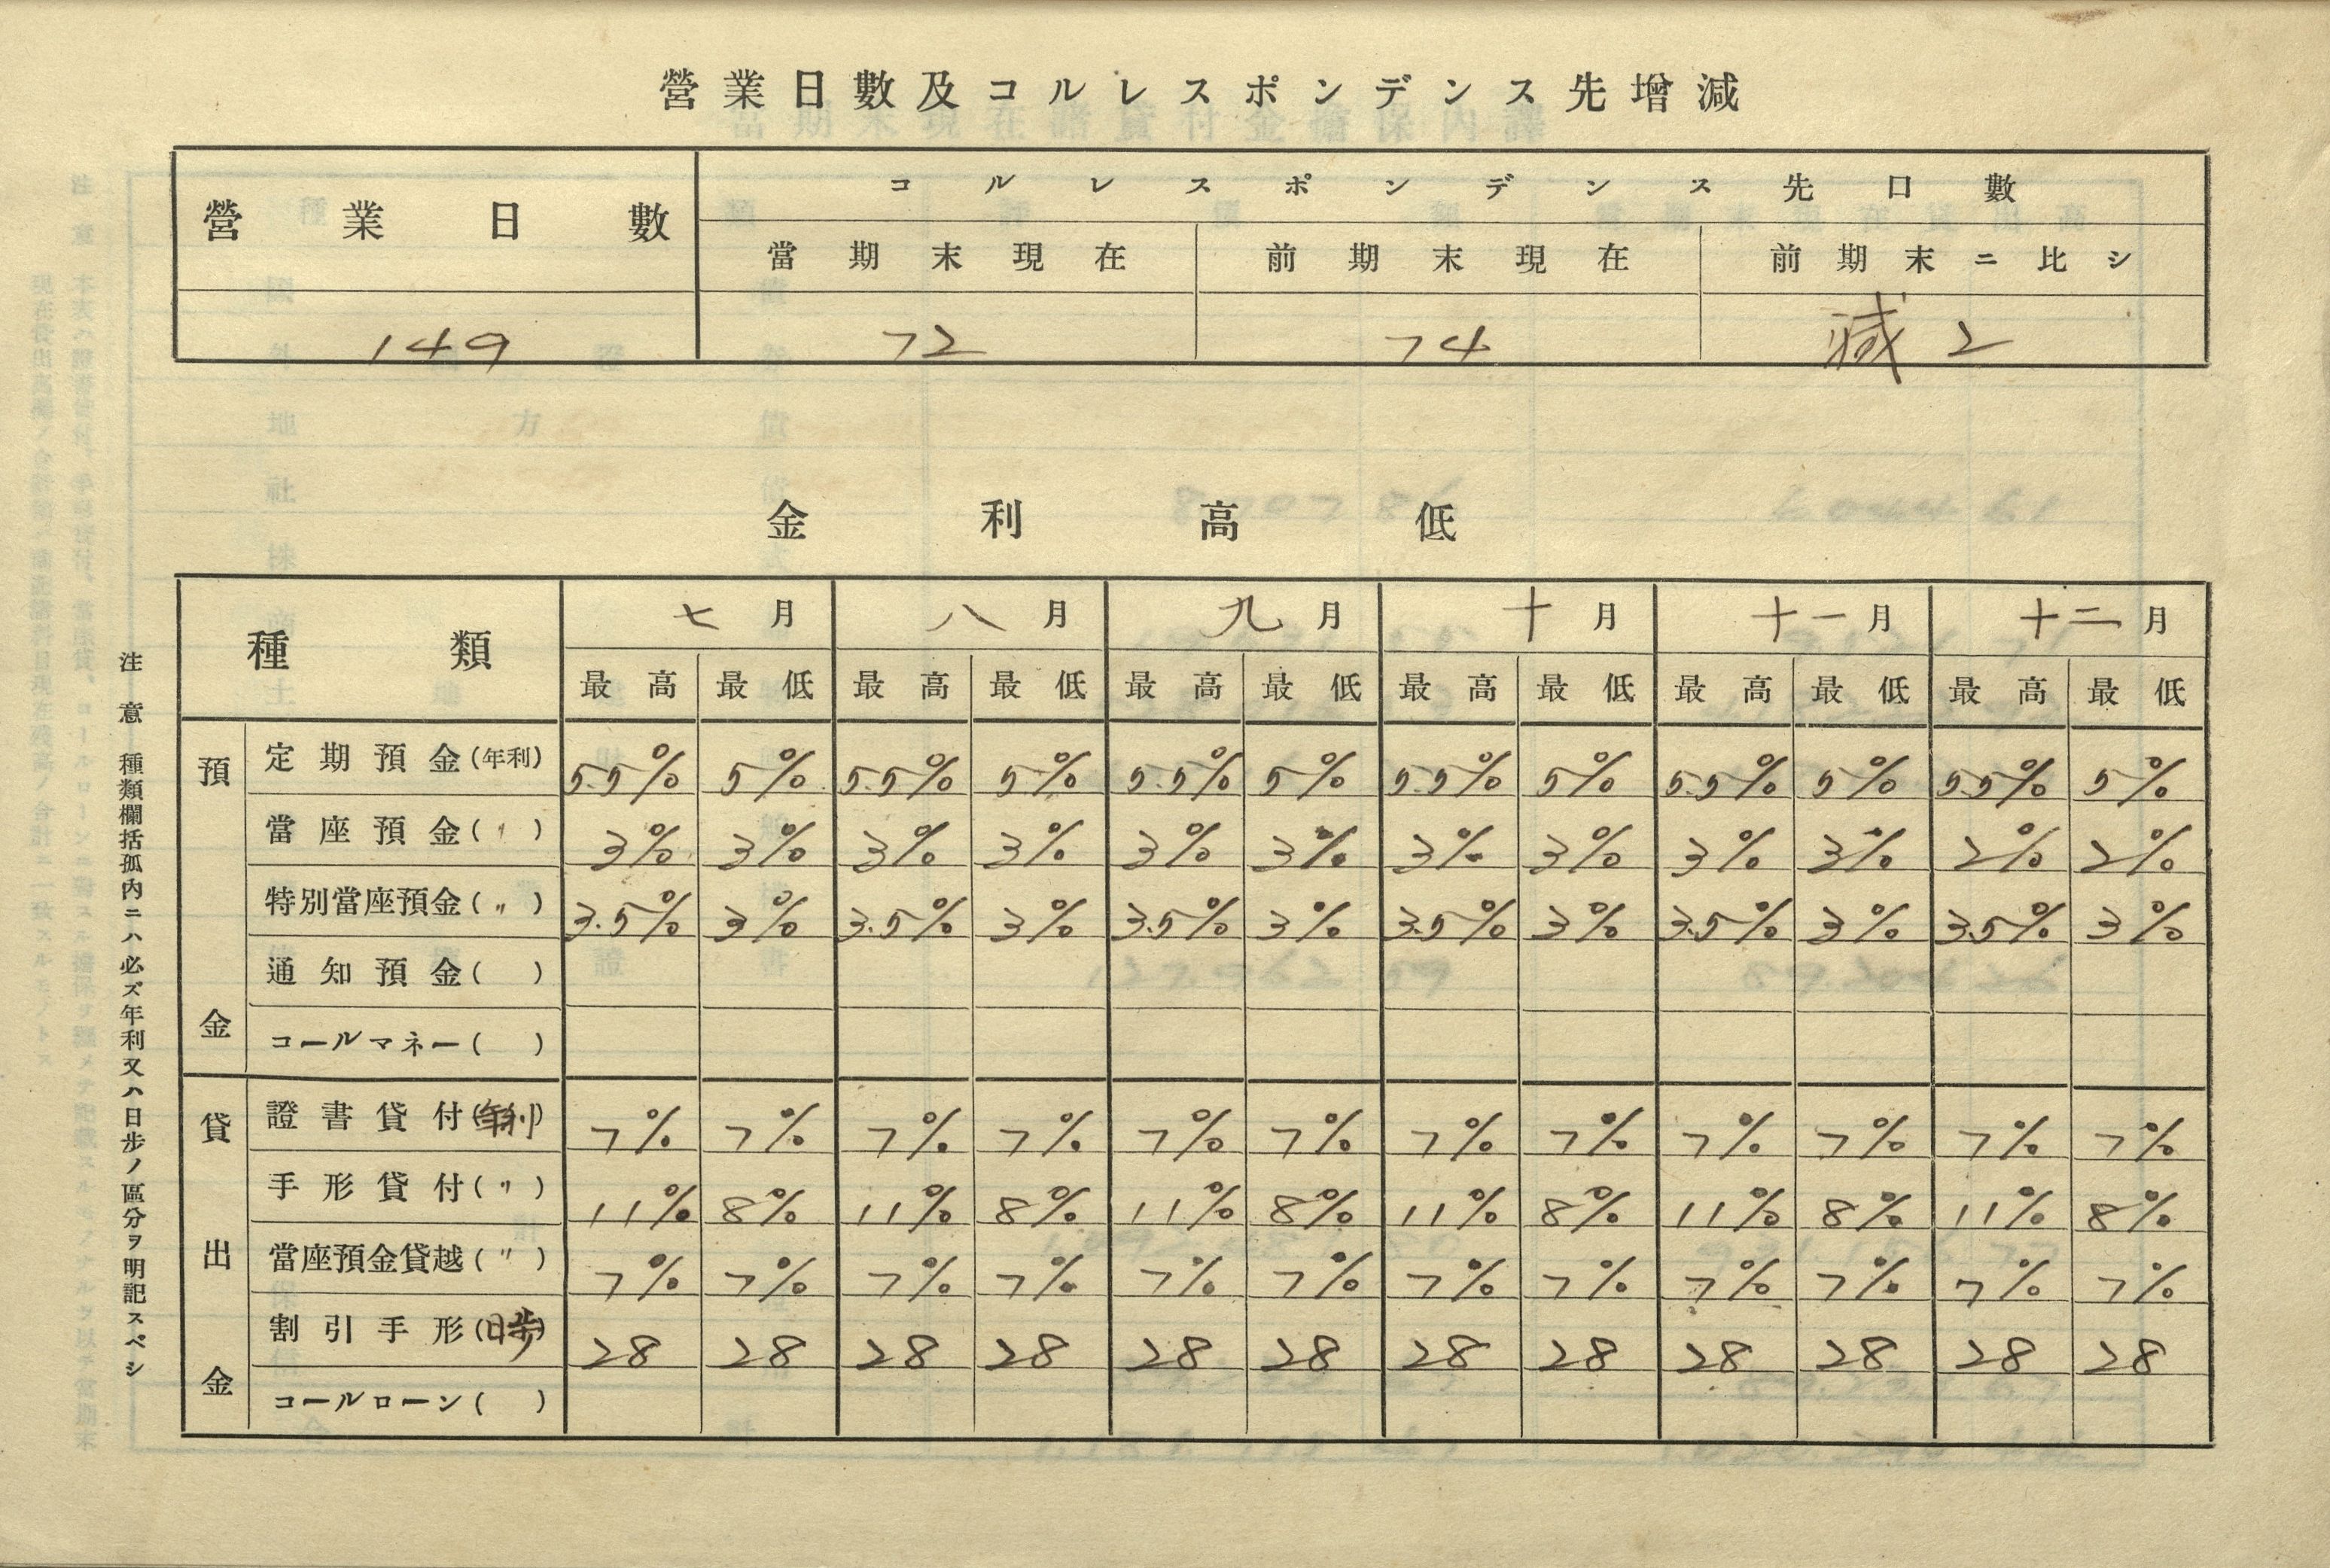 營業日數及コルレスポンデンス先增減
營業日數 コルレスポンデンス先口數
當期末現在 前期末現在 前期末ニ比シ
149 72 74 減2
金利高低
種類 七月 八月 九月 十月 十一月 十二月
最高 最低 最高 最低 最高 最低 最高 最低 最高 最低 最高 最低
預金
定期預金(年利) 5.5% 5% 5.5% 5% 5.5% 5% 5.5% 5% 5.5% 5% 5.5% 5%
當座預金(〃) 3% 3% 3% 3% 3% 3% 3% 3% 3% 3% 2% 2%
特別當座預金(〃) 3.5% 3% 3.5% 3% 3.5% 3% 3.5% 3% 3.5% 3% 3.5% 3%
通知預金( )
コールマネー( )
貸出金
證書貸付(年利) 7% 7% 7% 7% 7% 7% 7% 7% 7% 7% 7% 7%
手形貸付(〃) 11% 8% 11% 8% 11% 8% 11% 8% 11% 8% 11% 8%
當座預金貸越(〃) 7% 7% 7% 7% 7% 7% 7% 7% 7% 7% 7% 7%
割引手形(日歩) 28 28 28 28 28 28 28 28 28 28 28 28
コールローン( )
注意 種類欄括孤內ニハ必ズ年利又ハ日步ノ區分ヲ明記スベシ